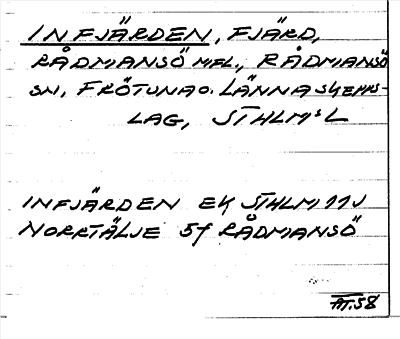 INFJÄRDEN, FJÄRD,
RÅDMANSÖ M.FL., RÅDMANSÖ
SN, FRÖTUNA O. LÄNNA SKEPPS-
LAG, STHLM:S L
INFJÄRDEN EK STHLM 11J
NORRTÄLJE 5f RÅDMANSÖ